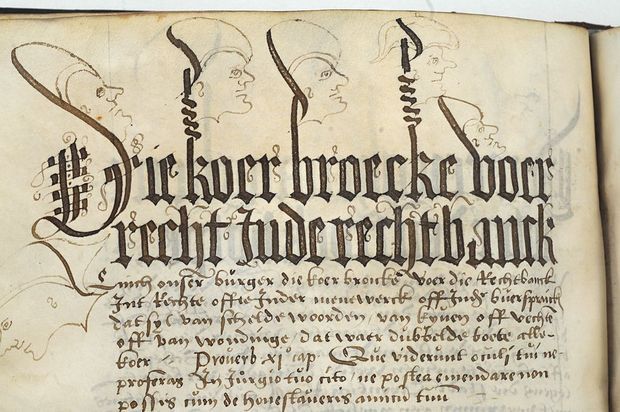 Die koer broecke voer
recht Inde rechtbanck
Einich onser burger die koer broucke voer die Rechtbanck
Int Rechte offte Inder menewerck off Inde buerspraeck
dat sy van schelde woorden, van kyuen off vechte
off van wondinge, dat waer dubbelde boete alle
koer Proverb xj cap Que viderunt oculi tui ne
proferas In Jurgio tuo cito, ne postea emendare non
possis cum de honestaueris amicum tuum